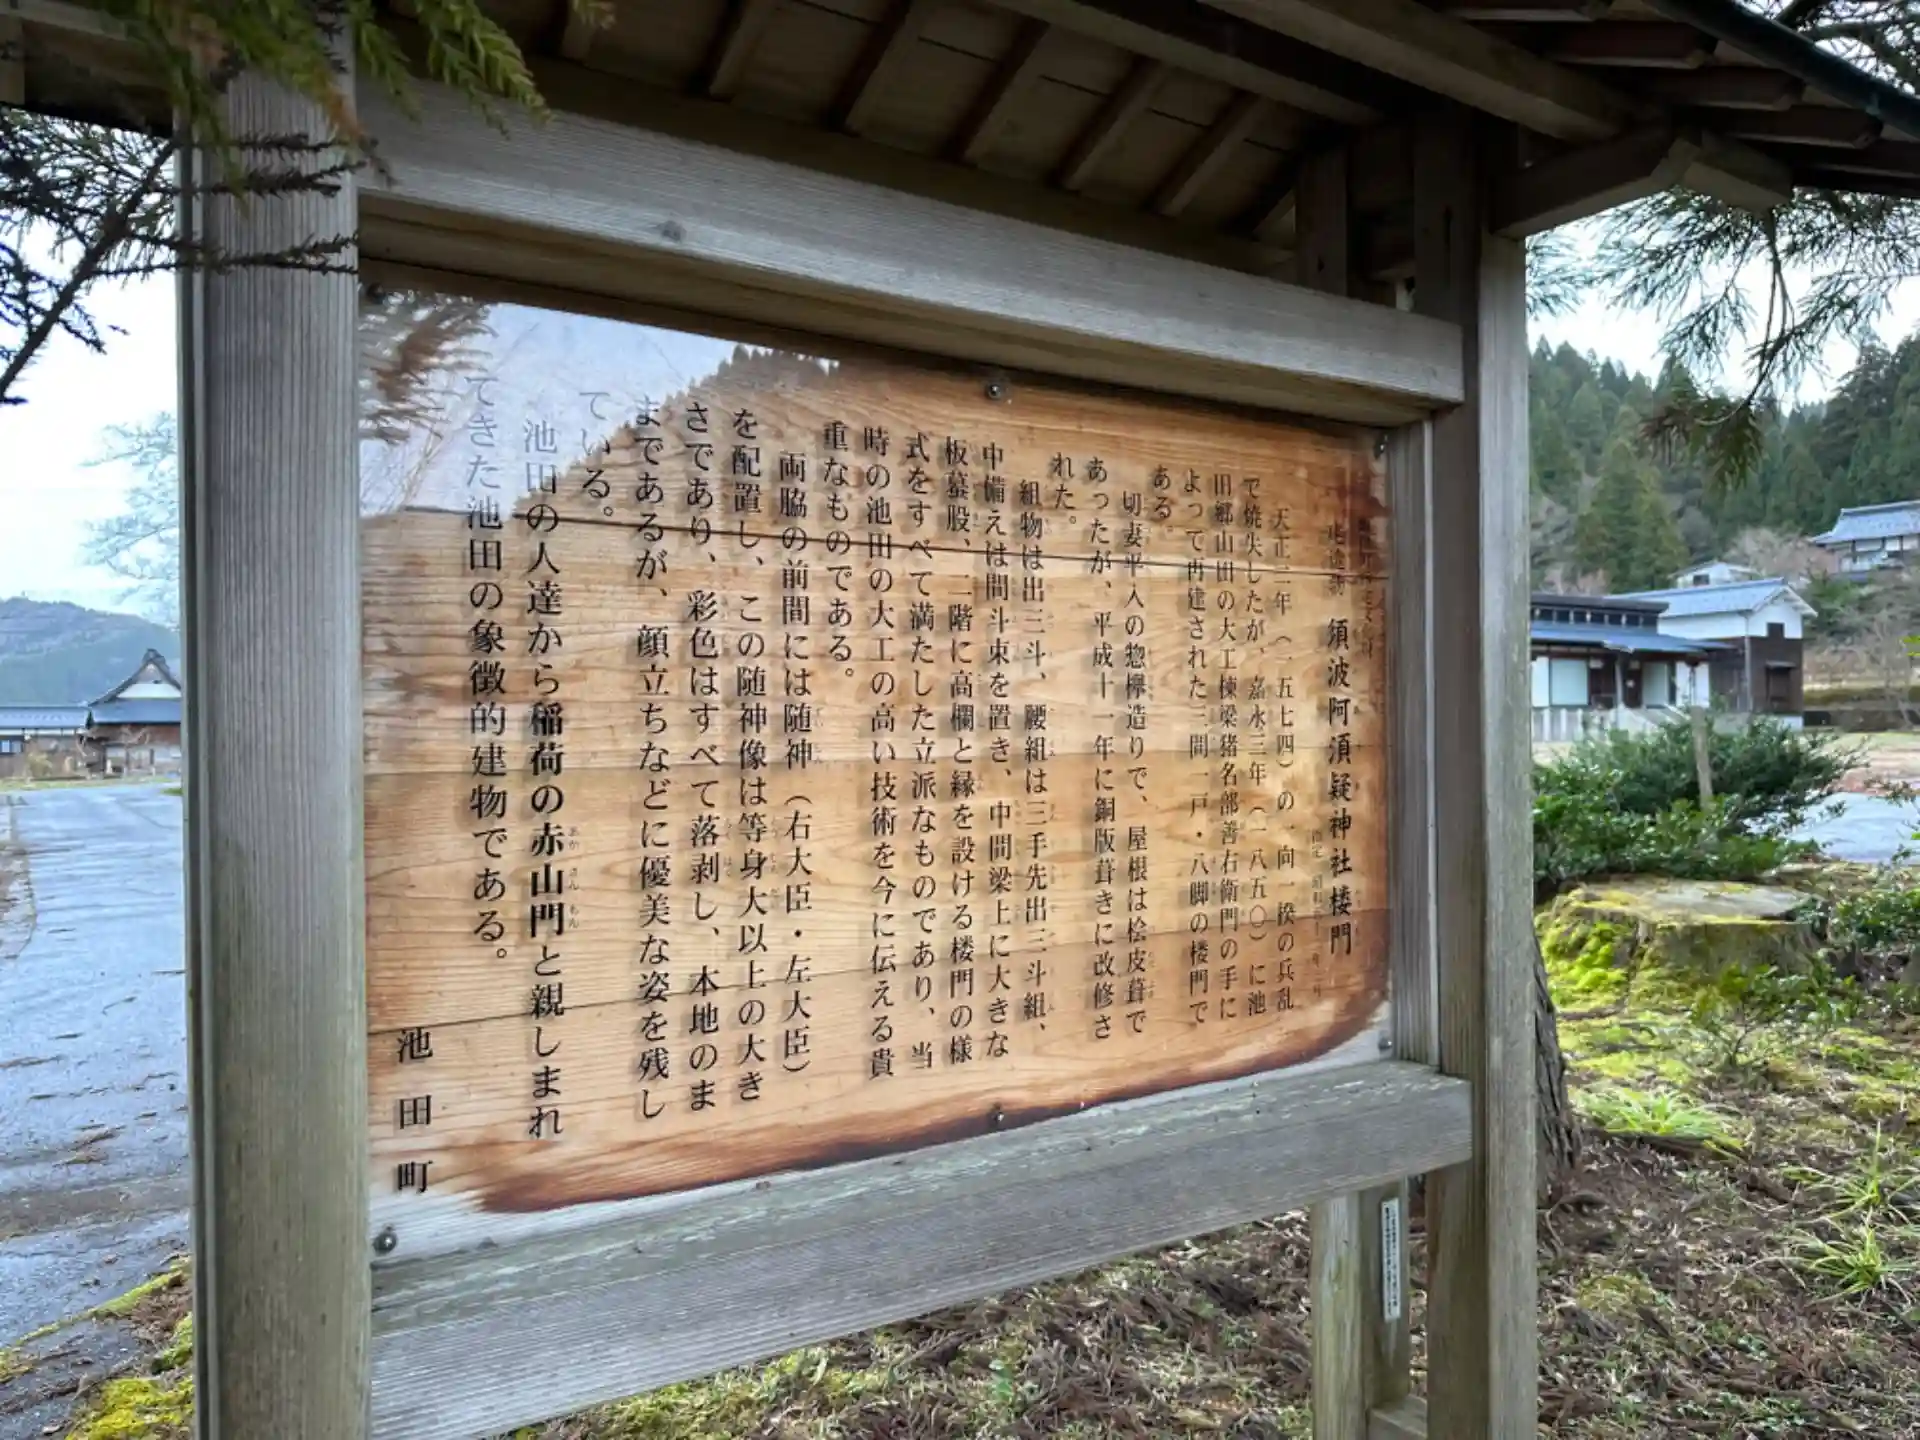 須波阿湏疑神社楼門
天正二年（一五七四）の一向一揆の兵乱
で焼失したが、嘉永三年（一八五〇）に池
田郷山田の大工棟梁猪名部善右衛門の手に
よって再建された三間一戸・八脚の楼門で
ある。
切妻平入の惣欅造りで、屋根は桧皮葺で
あったが、平成十一年に銅版葺きに改修さ
れた。
組物は出三斗、腰組は三手先出三斗組、
中備えは間斗束を置き、中間梁上に大きな
板蟇股、二階に高欄と縁を設ける楼門の様
式をすべて満たした立派なものであり、当
時の池田の大工の高い技術を今に伝える貴
重なものである。
両脇の前間には随神（右大臣・左大臣）
を配置し、この随神像は等身大以上の大き
さであり、彩色はすべて落剥し、本地のま
まであるが、顔立ちなどに優美な姿を残し
ている。
池田の人達から稲荷の赤山門と親しまれ
てきた池田の象徴的建物である。
池田町